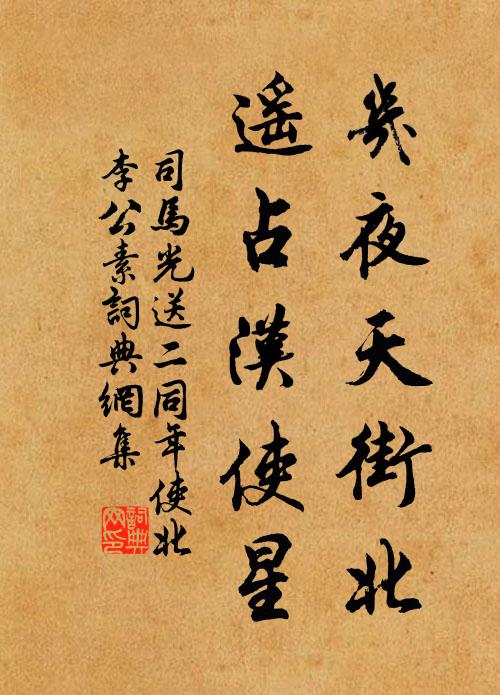 幾夜天街北
遥占漢使星
司馬光送二同年使北
李公素詞典網集
詞典網印